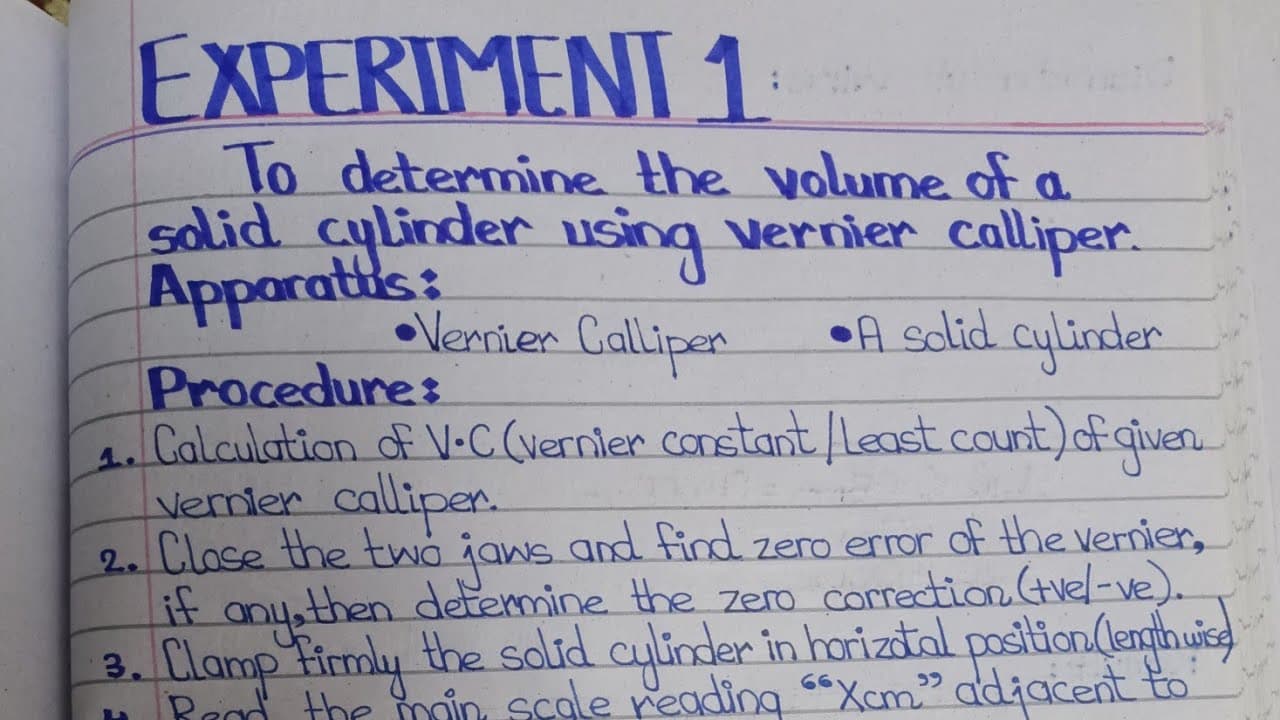 EXPERIMENT 1:
To determine the volume of a
solid cylinder using vernier calliper.
Apparatus:
•Vernier Calliper •A solid cylinder
Procedure:
1. Calculation of V.C (vernier constant/Least count) of given
vernier calliper.
2. Close the two jaws and find zero error of the vernier,
if any, then determine the zero correction (+ve/-ve).
3. Clamp firmly the solid cylinder in horizotal position (length wise)
4. Read the main scale reading "Xcm" adjacent to